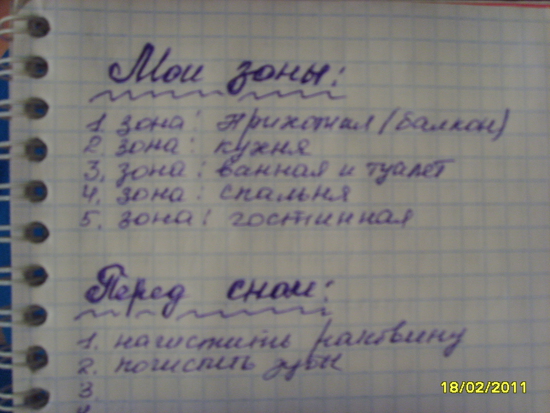 Мои зоны:
1. зона: прихожая (балкон)
2 зона: кухня
3. зона: ванная и туалет
4. зона: спальня
5. зона: гостинная
Перед сном:
1. начистить раковину
2. почистить зубы
3.
18/02/2011